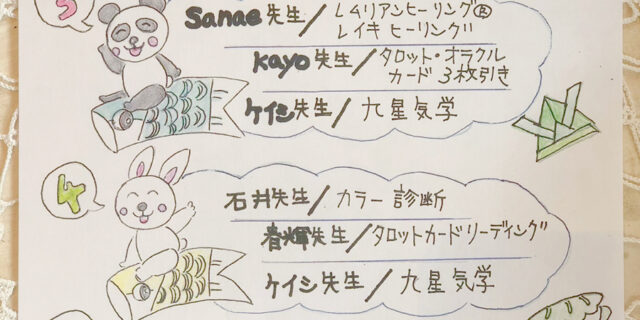 3
Sanae先生/レムリアンヒーリング®
レイキヒーリング
kayo先生/タロット・オラクル
カード3枚引き
ケイシ先生/九星気学
4
石井先生/カラー診断
春輝先生/タロットカードリーディング
ケイシ先生/九星気学